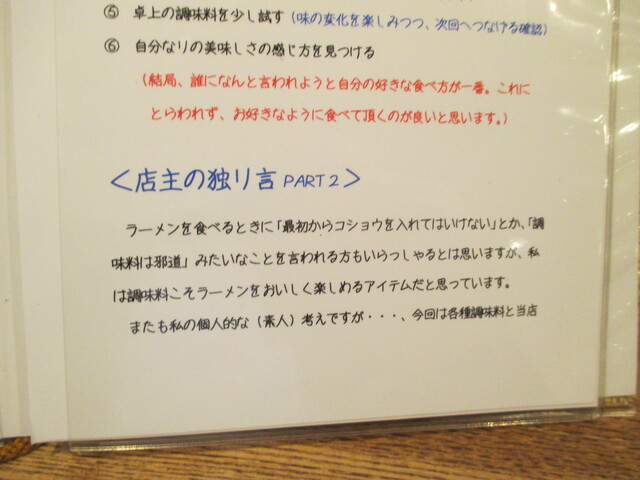 ⑤ 卓上の調味料を少し試す(味の変化を楽しみつつ、次回へつなげる確認)
⑥ 自分なりの美味しさの感じ方を見つける
(結局、誰になんと言われようと自分の好きな食べ方が一番。これに
とらわれず、お好きなように食べて頂くのが良いと思います。)
<店主の独り言 PART2>
ラーメンを食べるときに「最初からコショウを入れてはいけない」とか、「調
味料は邪道」みたいなことを言われる方もいらっしゃるとは思いますが、私
は調味料こそラーメンをおいしく楽しめるアイテムだと思っています。
またも私の個人的な(素人)考えですが・・・、今回は各種調味料と当店